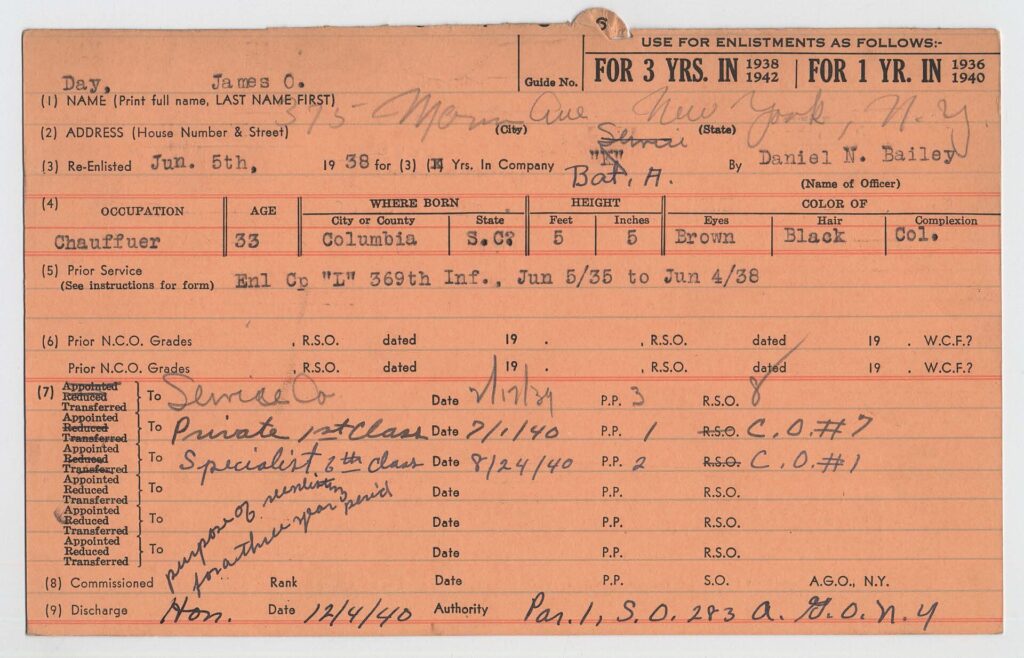 USE FOR ENLISTMENTS AS FOLLOWS:-
Guide No. FOR 3 YRS. IN 1938 1942 | FOR 1 YR. IN 1936 1940
Day, James O.
(1) NAME (Print full name, LAST NAME FIRST)
375 Ave New York, N.Y.
(2) ADDRESS (House Number & Street) (City) (State)
Service
(3) Re-Enlisted Jun. 5th, 1938 for (3) (1) Yrs. In Company "L" By Daniel N. Bailey
Bat, A.
(Name of Officer)
(4) OCCUPATION AGE WHERE BORN HEIGHT COLOR OF
City or County State Feet Inches Eyes Hair Complexion
Chauffuer 33 Columbia S.C? 5 5 Brown Black Col.
(5) Prior Service
(See instructions for form) Enl Cp "L" 369th Inf., Jun 5/35 to Jun 4/38
(6) Prior N.C.O. Grades , R.S.O. dated 19 . , R.S.O. dated 19 . W.C.F.?
Prior N.C.O. Grades , R.S.O. dated 19 . , R.S.O. dated 19 . W.C.F.?
(7) Appointed Reduced Transferred } To Service Co Date 2/17/39 P.P. 3 R.S.O. 8
Appointed Reduced Transferred } To Private 1st Class Date 7/1/40 P.P. 1 R.S.O. C.O.#7
Appointed Reduced Transferred } To Specialist 6th Class Date 8/24/40 P.P. 2 R.S.O. C.O.#1
Appointed Reduced Transferred } To Date P.P. R.S.O.
Appointed Reduced Transferred } To Date P.P. R.S.O.
Appointed Reduced Transferred } To Date P.P. R.S.O.
purpose of reenlisting
for a three year period
(8) Commissioned Rank Date P.P. S.O. A.G.O., N.Y.
(9) Discharge Hon. Date 12/4/40 Authority Par. 1, S.O. 283 A.G.O.N.Y